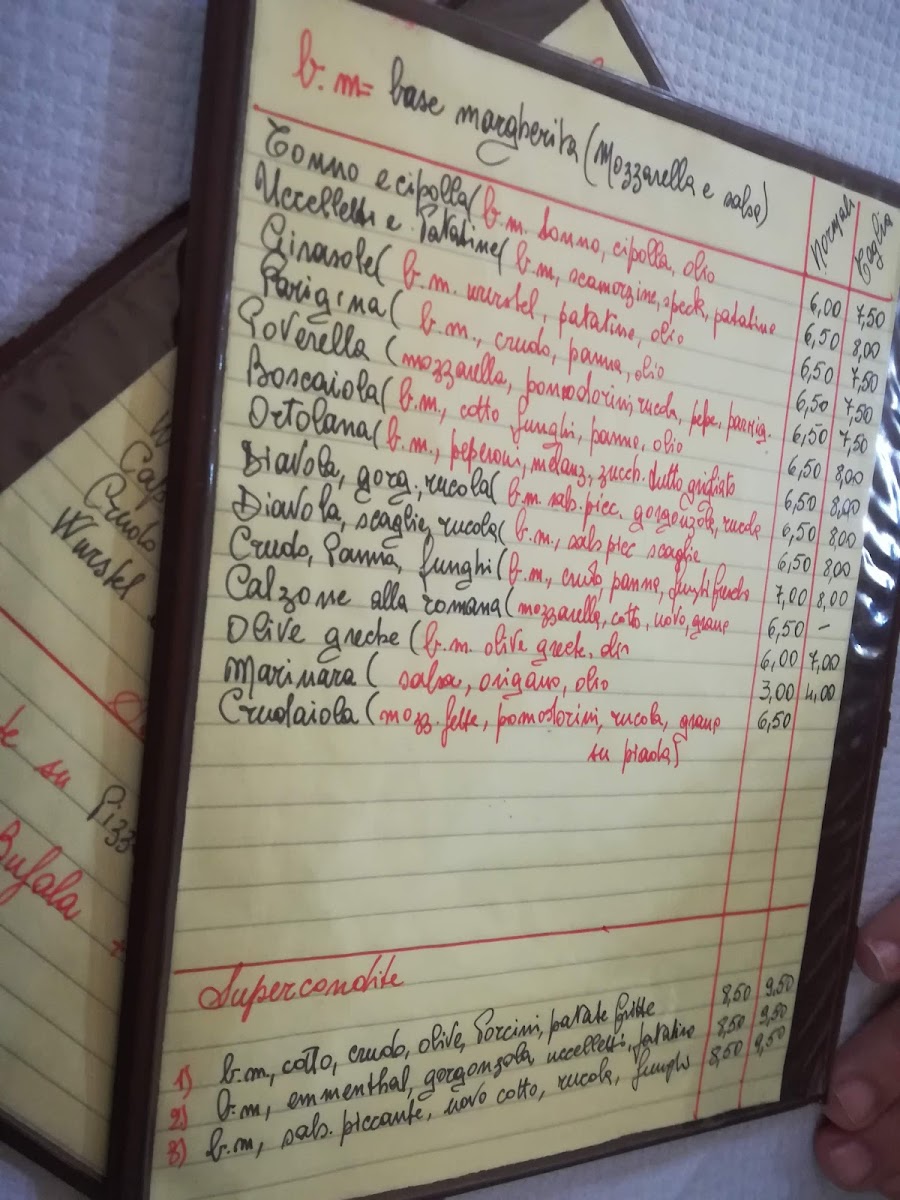 b.m = base margherita (Mozzarella e salsa)
Normali Taglia
Tonno e cipolla (b.m. tonno, cipolla, olio 6,00 7,50
Uccelletti e Patatine (b.m, scamorzine, speck, patatine 6,50 8,00
Girasole (b.m. wurstel, patatine, olio 6,50 7,50
Parigina (b.m., crudo, panna, olio 6,50 7,50
Poverella (mozzarella, pomodorini, rucola, pepe, parmig. 6,50 7,50
Boscaiola (b.m., cotto funghi, panna, olio 6,50 8,00
Ortolana (b.m., peperoni, melanz, zucch. tutto grigliato 6,50 8,00
Diavola, gorg., rucola (b.m. sals. picc. gorgonzola, rucola 6,50 8,00
Diavola, scaglie, rucola (b.m., sals picc scaglie 6,50 8,00
Crudo, Panna, funghi (b.m., crudo panna, funghi freschi 7,00 8,00
Calzone alla romana (mozzarella, cotto, uovo, grana 6,50 -
Olive greche (b.m. olive greche, olio 6,00 7,00
Marinara (salsa, origano, olio 3,00 4,00
Crudaiola (mozz. fette, pomodorini, rucola, grana 6,50
su piada)
Supercondite
1) b.m, cotto, crudo, olive, Porcini, patate fritte 8,50 9,50
2) b.m, emmenthal, gorgonzola, uccelletti, patatine 8,50 9,50
3) b.m, sals. piccante, uovo cotto, rucola, funghi 8,50 9,50
Crudo
Wurstel
su Pizz
Bufala +